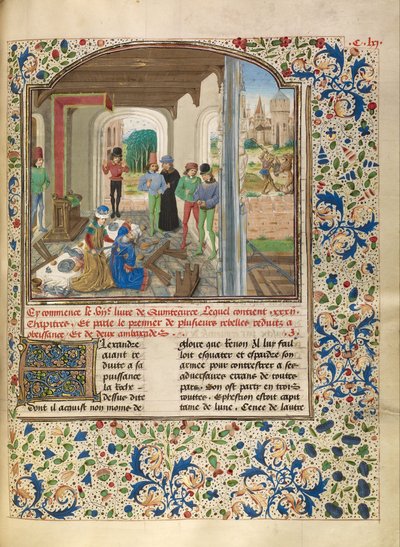 C. lxj.
Cy commence le Hij.e livre de Quinte curce Lequel contient xxxij
Chapitres. Et parle le premier de plusieurs rebelles reduitz a
obeissance. Et de deux ambaxades
Alexandre
aiant re
duite a sa
puissance
la
dessus dite
dont il acquist non moins de
gloire que
loit et espardre son
armee pour contrester a ses
adversaires
pars. Son ost party en trois
routtes. Ephestion estoit capi
taine de lune. de lautre